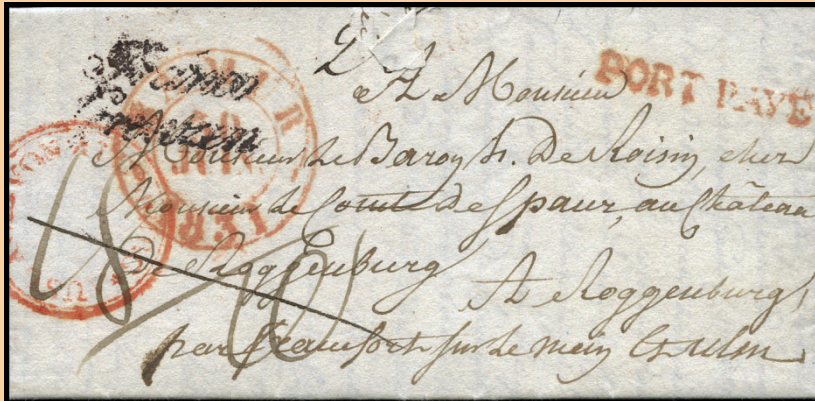 NAMUR
1831
PORT PAYÉ
A Monsieur
Monsieur Le Baron h. De Roisin, chez
Monsieur Le Comte de Spaur, au Château
De Roggenburg
A Roggenburg,
par francfort sur Le mein & ulm